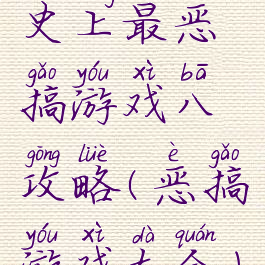 史上最恶
gǎo yóu xì bā
搞游戏八
gōng lüè è gǎo
攻略(恶搞
yóu xì dà quán
游戏大全)